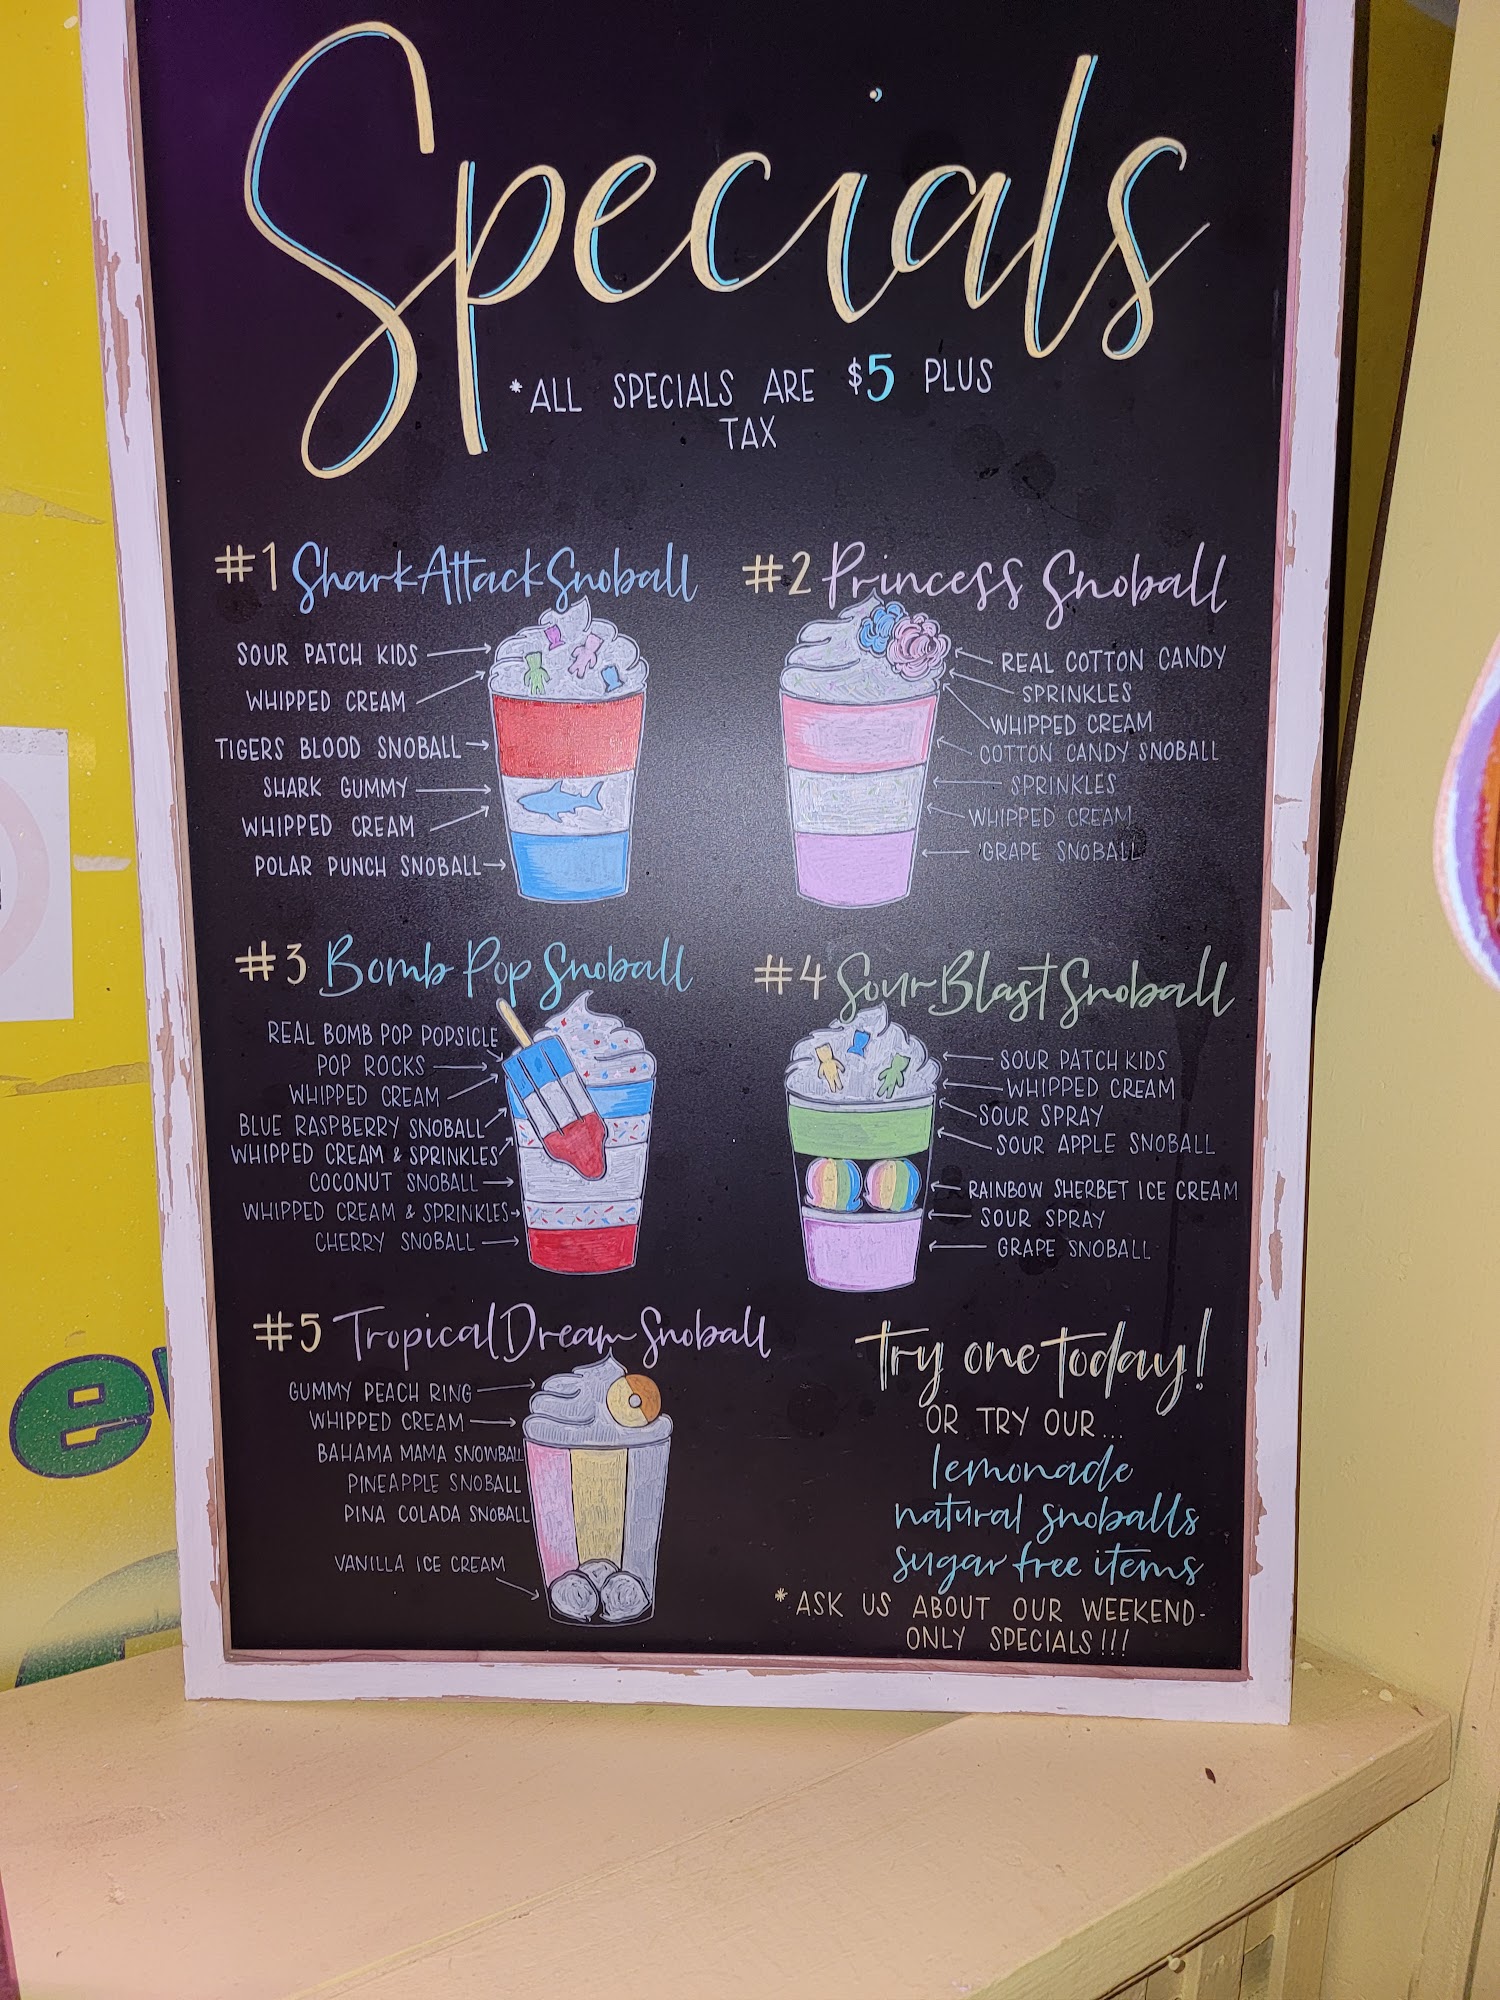 Specials
*ALL SPECIALS ARE $5 PLUS
TAX
#1 Shark Attack Snoball
SOUR PATCH KIDS
WHIPPED CREAM
TIGERS BLOOD SNOBALL
SHARK GUMMY
WHIPPED CREAM
POLAR PUNCH SNOBALL
#2 Princess Snoball
REAL COTTON CANDY
SPRINKLES
WHIPPED CREAM
COTTON CANDY SNOBALL
SPRINKLES
WHIPPED CREAM
GRAPE SNOBALL
#3 Bomb Pop Snoball
REAL BOMB POP POPSICLE
POP ROCKS
WHIPPED CREAM
BLUE RASPBERRY SNOBALL
WHIPPED CREAM & SPRINKLES
COCONUT SNOBALL
WHIPPED CREAM & SPRINKLES
CHERRY SNOBALL
#4 Sour Blast Snoball
SOUR PATCH KIDS
WHIPPED CREAM
SOUR SPRAY
SOUR APPLE SNOBALL
RAINBOW SHERBET ICE CREAM
SOUR SPRAY
GRAPE SNOBALL
#5 Tropical Dream Snoball
GUMMY PEACH RING
WHIPPED CREAM
BAHAMA MAMA SNOWBALL
PINEAPPLE SNOBALL
PINA COLADA SNOBALL
VANILLA ICE CREAM
Try one today!
OR TRY OUR...
lemonade
natural snoballs
sugar free items
*ASK US ABOUT OUR WEEKEND-
ONLY SPECIALS!!!